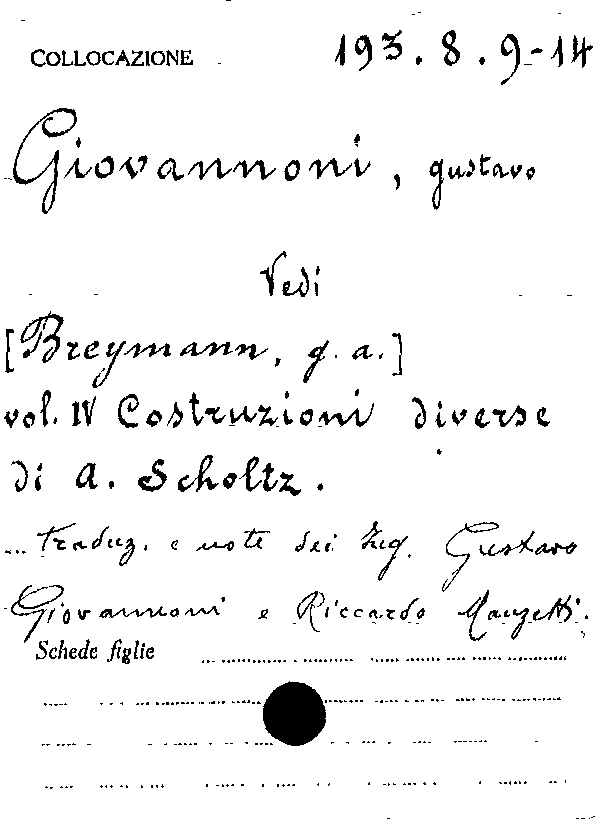 COLLOCAZIONE 193.8.9-14
Giovannoni, gustavo
Vedi
[Breymann, g. a.]
vol. IV Costruzioni diverse
di A. Scholtz.
... traduz. e note dei Ing. Gustavo
Giovannoni e Riccardo Manzetti.
Schede figlie